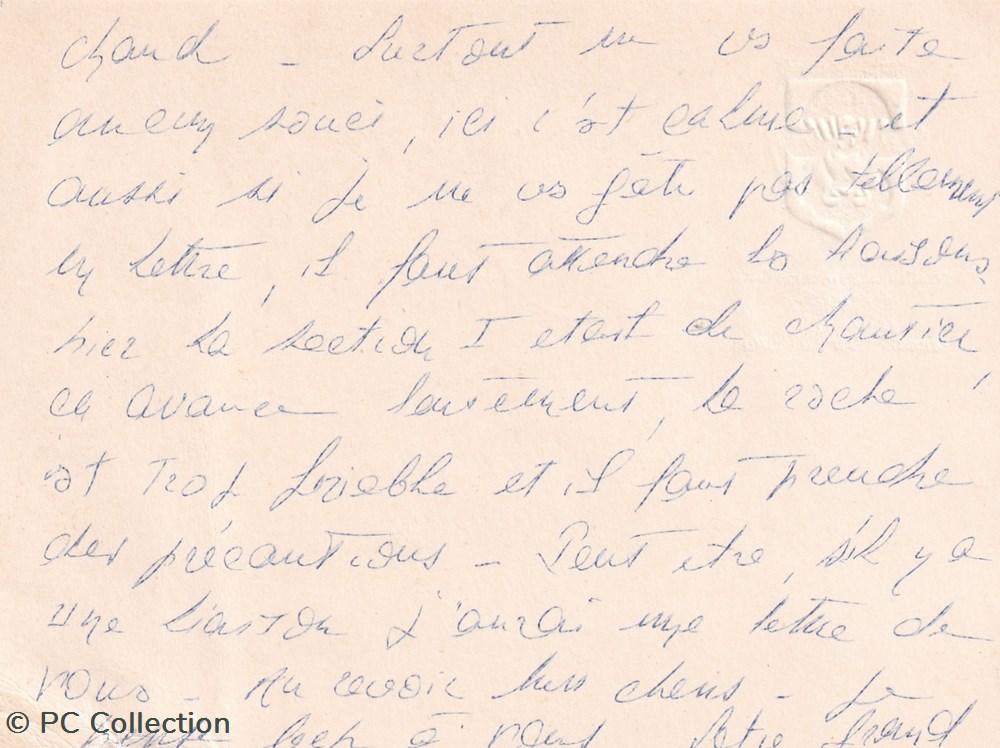 chaud - Surtout ne vs faite
aucun souci, ici c'est calme et
aussi si je ne vs gête pas tellement
en lettre, il faut attendre les liaisons,
hier la section I etait de chantier,
ca avance lentement, la roche
est trop friable et il faut prendre
des précautions - Peut etre, s'il y a
une liaison j'aurai une lettre de
vous - Au revoir mes cheris - Je
pense bcp à vous Votre grand
© PC Collection